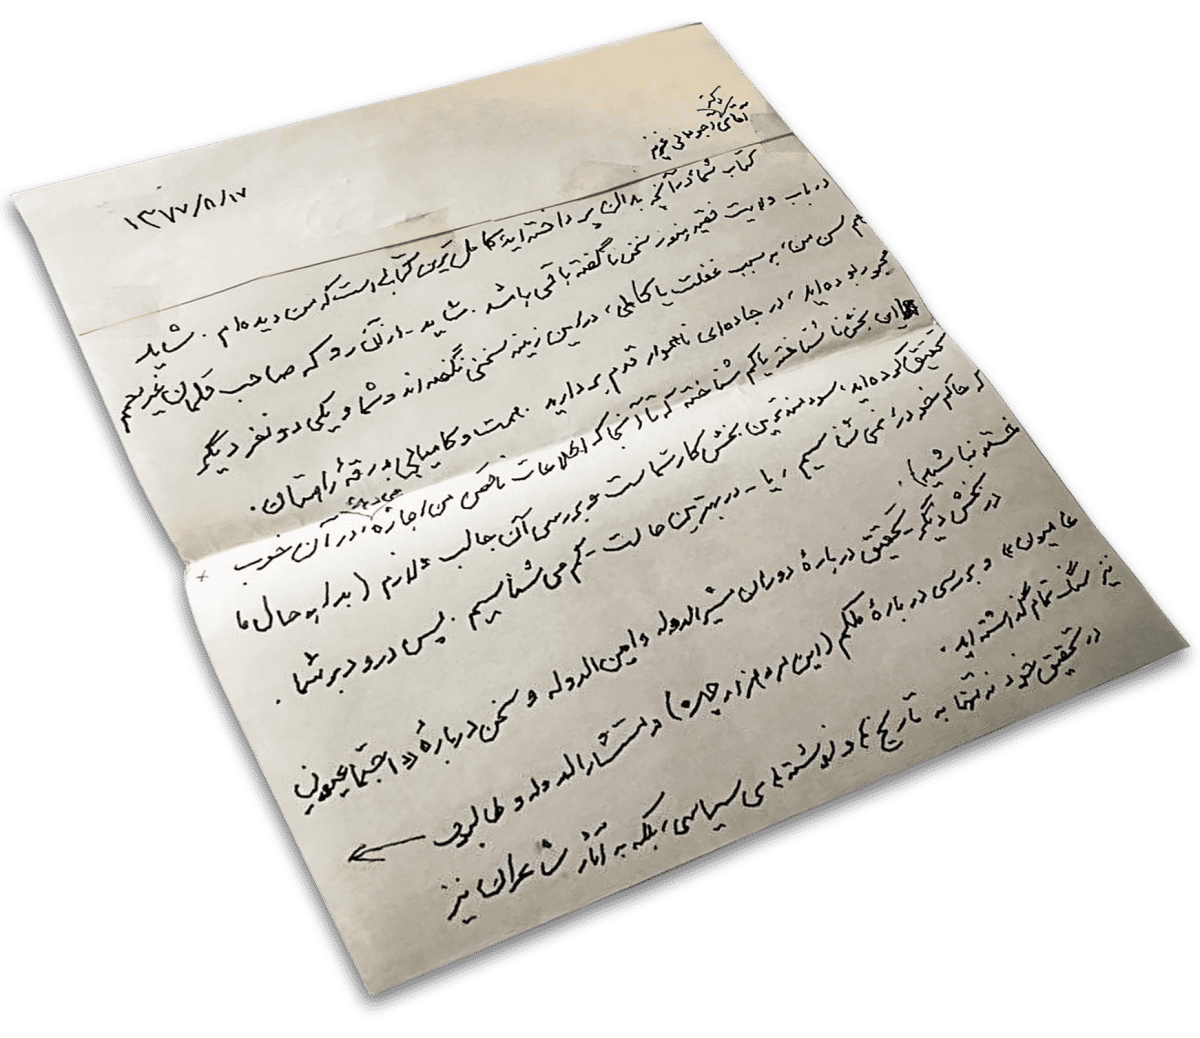 ۱۳۷۷/۸/۱۷
دکتر
آقای آجودانی عزیز
کتاب شما در آنچه بدان پرداخته‌اید کامل‌ترین کتابی است که من دیده‌ام. شاید
در باب ولایت فقیه هنوز سخن ناگفته باقی باشد. شاید - از آن رو که صاحب قلمان غیر هم
هم سن من، به سبب غفلت یا کاهلی، در این زمینه سخنی نگفته‌اند و شما و یکی دو نفر دیگر
مجبور بوده‌اید، در جاده‌ای ناهموار قدم بردارید. همت و کامیابی بدرقهٔ راهتان.
این بخش ناشناخته یا کم شناخته که تا آنجا که اطلاعات ناقص من اجازه می‌دهد، در آن خوب
تحقیق کرده‌اید، سودمندترین بخش کار شماست و بررسی آن جالب و لازم (بدا به حال ما
که حاکم خود را نمی‌شناسیم، یا - در بهترین حالت - کم می‌شناسیم. پس درود بر شما.
خسته نباشید).
در بخش دیگر - تحقیق دربارهٔ دوران مشیرالدوله و امین‌الدوله و سخن دربارهٔ «اجتماعیون
عامیون» و بررسی دربارهٔ ملکم (این مرد هزار چهره) و مستشارالدوله و طالبوف
نیز سنگ تمام گذاشته‌اید.
در تحقیق خود نه تنها به تاریخ‌ها و نوشته‌های سیاسی، بلکه به آثار شاعران نیز